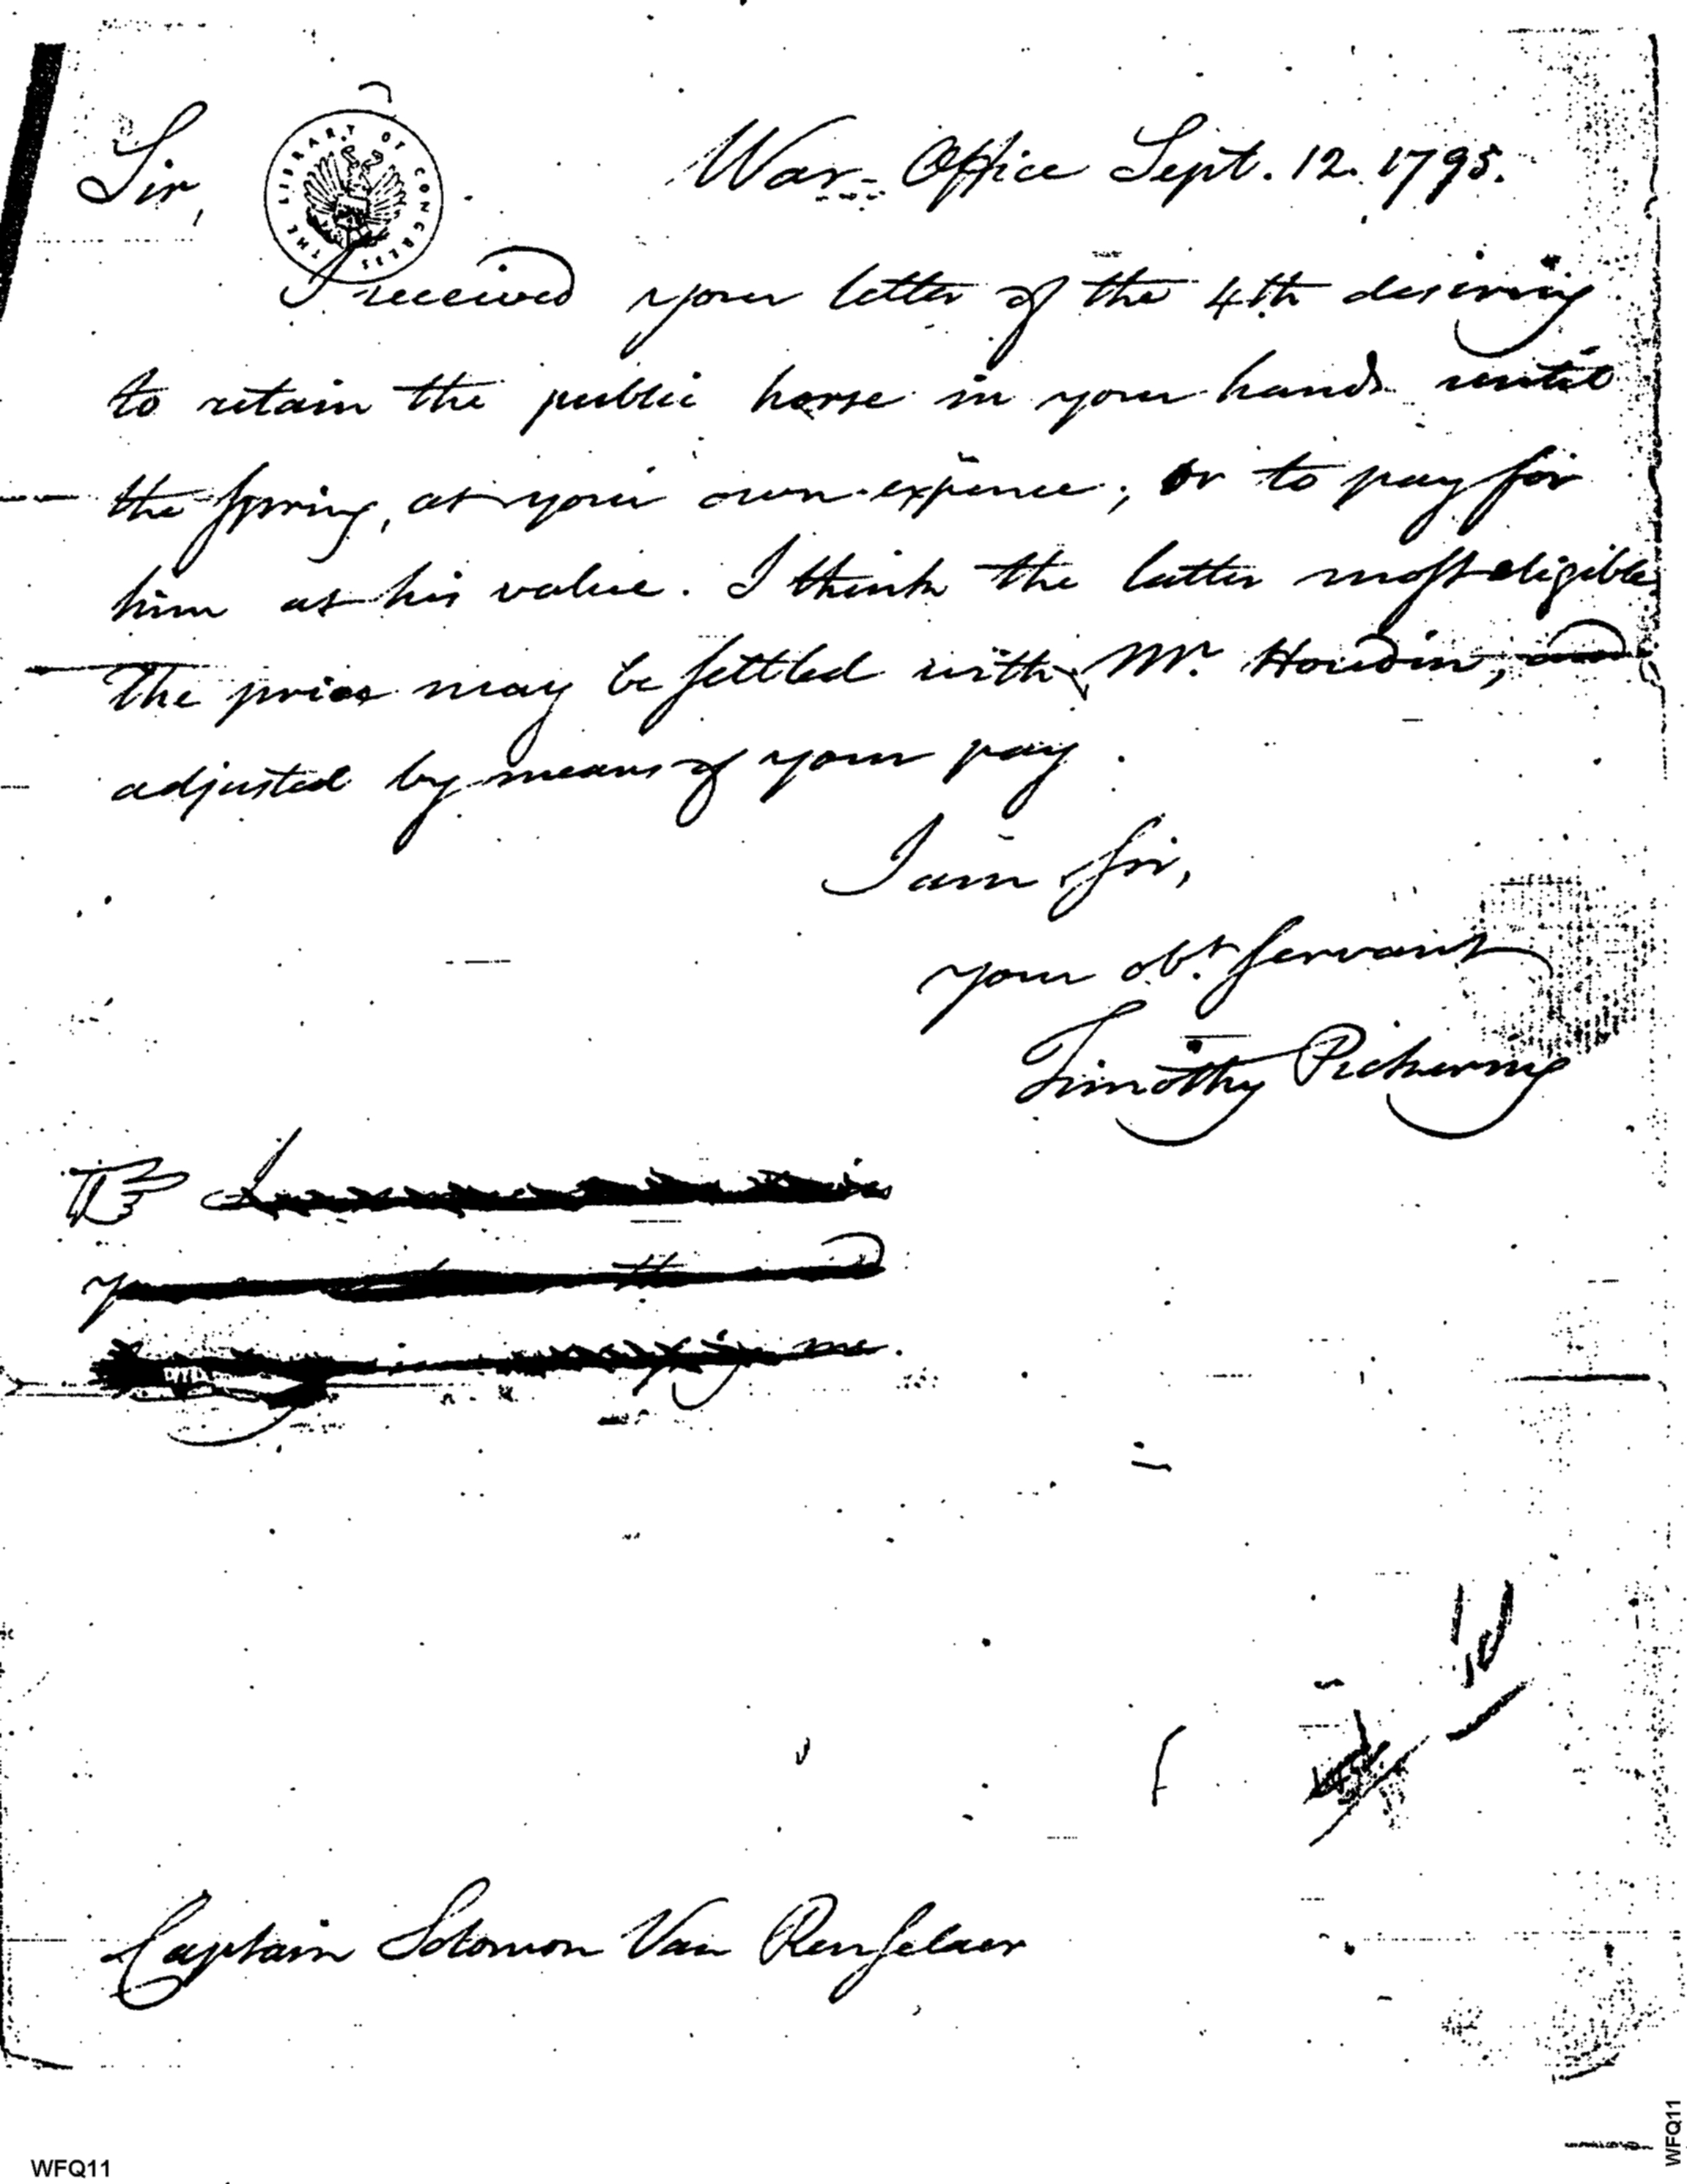 Sir,
War-Office Sept. 12. 1795.
THE LIBRARY OF CONGRESS
I received your letter of the 4th desiring
to retain the public horse in your hands until
the spring, at your own expence; or to pay for
him at his value. I think the latter most eligible
The price may be settled with Mr. Houdin, and
adjusted by means of your pay.
I am sir,
your obt. servant
Timothy Pickering
me.
Captain Solomon Van Rensselaer
WFQ11
WFQ11